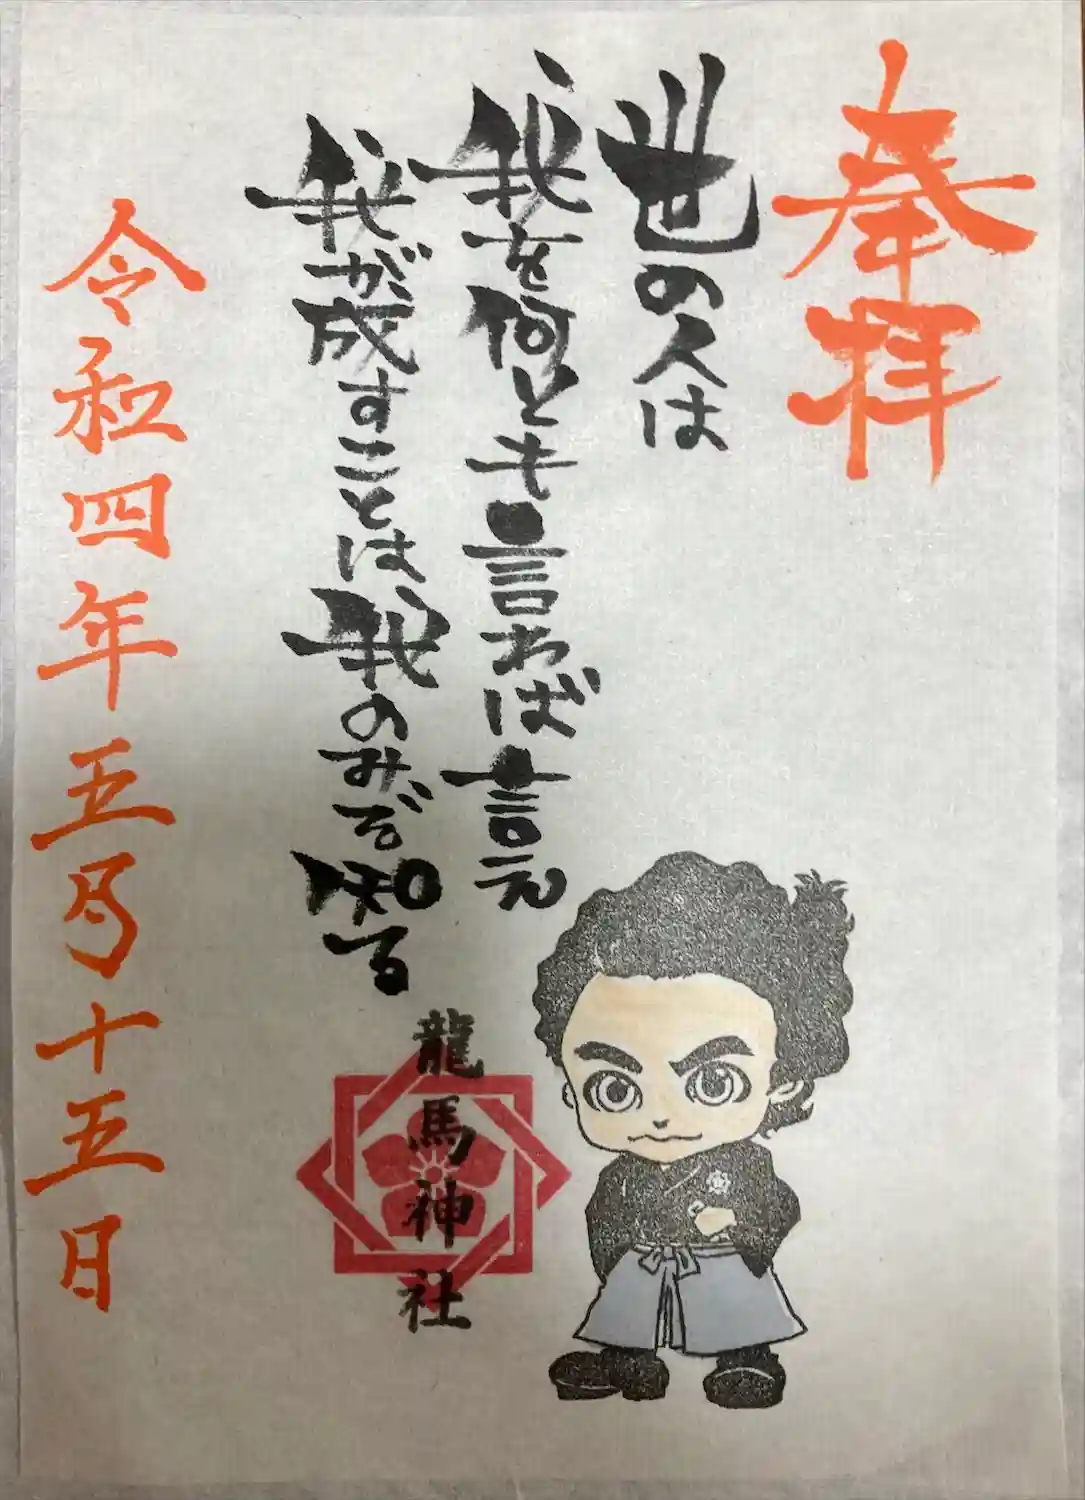 奉拝
世の人は
我を何とも言わば言え
我が成すことは、我のみぞ知る
龍馬神社
令和四年五月十五日